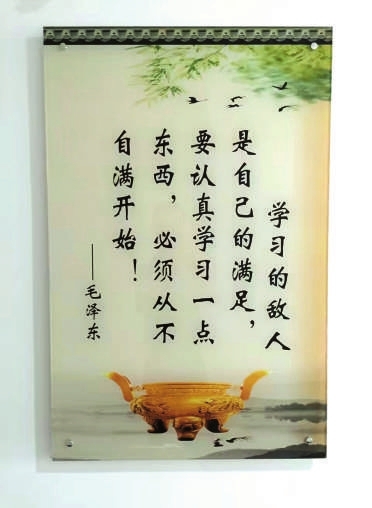 学习的敌人
是自己的满足，
要认真学习一点
东西，必须从不
自满开始！
——毛泽东